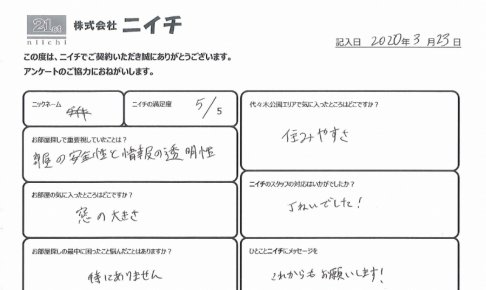 21st
niichi
株式会社 ニイチ
記入日 2020年 3月 23日
この度は、ニイチでご契約いただき誠にありがとうございます。
アンケートのご協力におねがいします。
ニックネーム
ニイチの満足度 5/5
お部屋探しで重要視していたことは?
部屋の安全性と情報の透明性
お部屋の気に入ったところはどこですか?
窓の大きさ
お部屋探しの最中に困ったこと悩んだことはありますか?
特にありません
代々木公園エリアで気に入ったところはどこですか?
住みやすさ
ニイチのスタッフの対応はいかがでしたか?
よかったでした!
ひとことニイチにメッセージを
これからもお願いします!